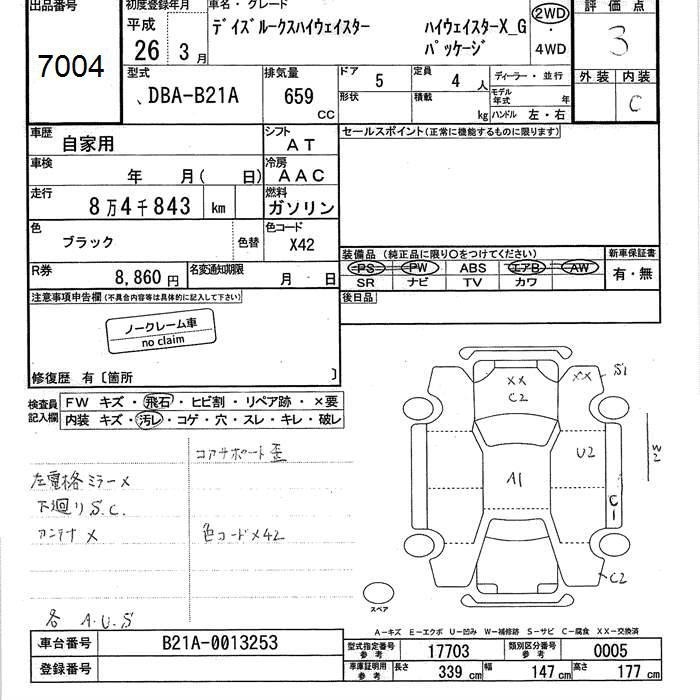 出品番号
7004
初度登録年月
平成
26 3月
車名・グレード
デイズルークスハイウェイスター ハイウェイスターX_G
パッケージ
2WD
・
4WD
評価点
3
外装 内装
C
型式
DBA-B21A
排気量
659 CC
ドア 5
定員 4 人
形状
積載 kg
ディーラー・並行
モデル年式 年
ハンドル 左・右
車歴 自家用
シフト AT
車検 年 月( 日)
冷房 AAC
走行 8万4千843 km
燃料 ガソリン
色 ブラック 色替
色コード X42
R券 8,860円
名変通知期限 月 日
セールスポイント(正常に機能するものに限ります)
装備品(純正品に限り○をつけてください)
PS PW ABS エアB AW
SR ナビ TV カワ
新車保証書
有・無
後日品
注意事項申告欄(不具合内容等は具体的に記入して下さい)
ノークレーム車
no claim
修復歴 有〔箇所 〕
検査員記入欄
FW キズ・飛石・ヒビ割・リペア跡・×要
内装 キズ・汚レ・コゲ・穴・スレ・キレ・破レ
コアサポート歪
左電格ミラー×
下廻りS.C.
アンテナ×
色コード×42
各 A.U.S
XX
C2
XX
S1
U2
A1
W2
C1
C2
スペア
A-キズ E-エクボ U-凹み W-補修跡 S-サビ C-腐食 XX-交換済
車台番号 B21A-0013253
登録番号
型式指定番号 参考 17703
類別区分番号 参考 0005
車庫証明用 参考 長さ 339 cm 幅 147 cm 高さ 177 cm